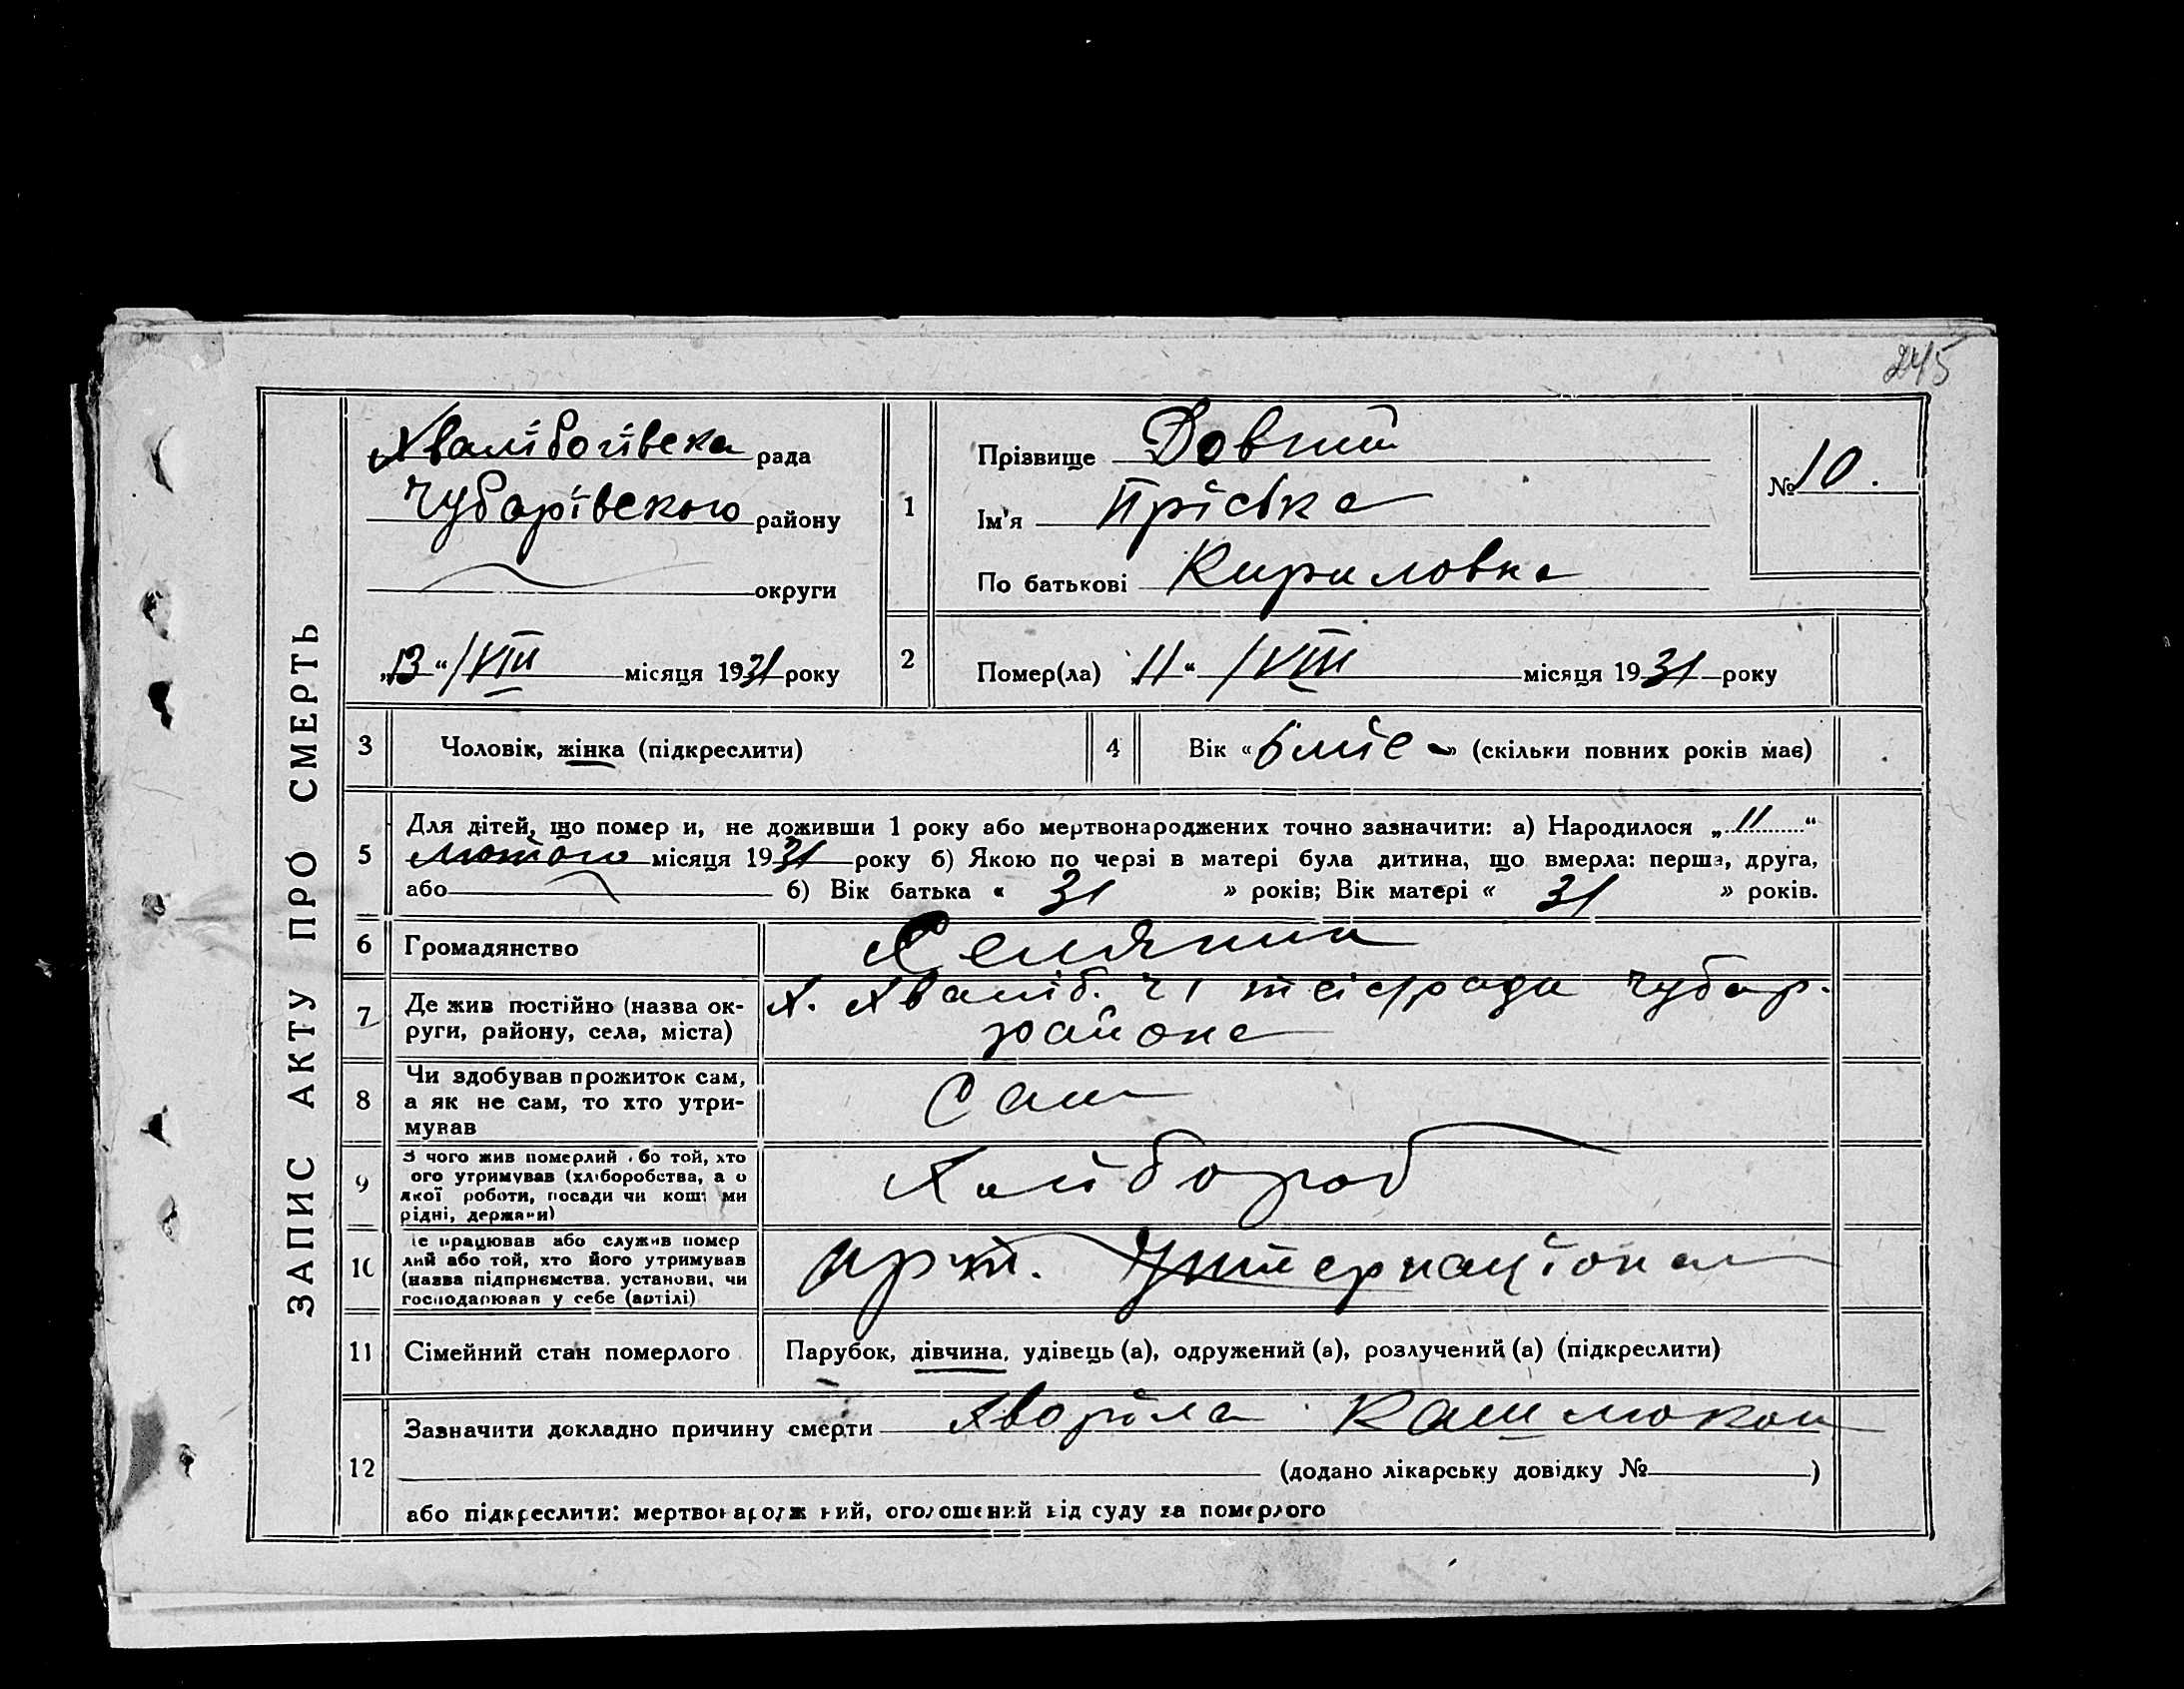 245
ЗАПИС АКТУ ПРО СМЕРТЬ
Хвалібогівська рада
Чубарівского району
округи
„13“ /VIII місяця 1931 року
1
Прізвище Довгий
Ім'я Пріська
По батькові Кириловна
№ 10.
2 Помер(ла) „11“ /VIII місяця 1931 року
3 Чоловік, жінка (підкреслити)
4 Вік «6 міс» (скільки повних років має)
5 Для дітей, що помер и, не доживши 1 року або мертвонароджених точно зазначити: а) Народилося „11“
Лютого місяця 1931 року б) Якою по черзі в матері була дитина, що вмерла: перша, друга,
або б) Вік батька « 31 » років; Вік матері « 31 » років.
6 Громадянство Селянин
7 Де жив постійно (назва ок-
руги, району, села, міста)
Х. Хваліб. сі рада Чубар.
района
8 Чи здобував прожиток сам,
а як не сам, то хто утри-
мував
Сам
9 З чого жив померлий бо той, хто
ого утримував (хліборобства, а о
якої роботи, посади чи кошт ми
рідні, держави)
Хлібороб
10 е працював або служив помер
лий або той, хто його утримував
(назва підприємства, установи, чи
господарював у себе (артілі)
арт. Інтернаціонал
11 Сімейний стан померлого Парубок, дівчина, удівець (а), одружений (а), розлучений (а) (підкреслити)
12 Зазначити докладно причину смерти Хворіла Кашлюком
(додано лікарську довідку № )
або підкреслити: мертвонародж ний, оголошений від суду за померлого